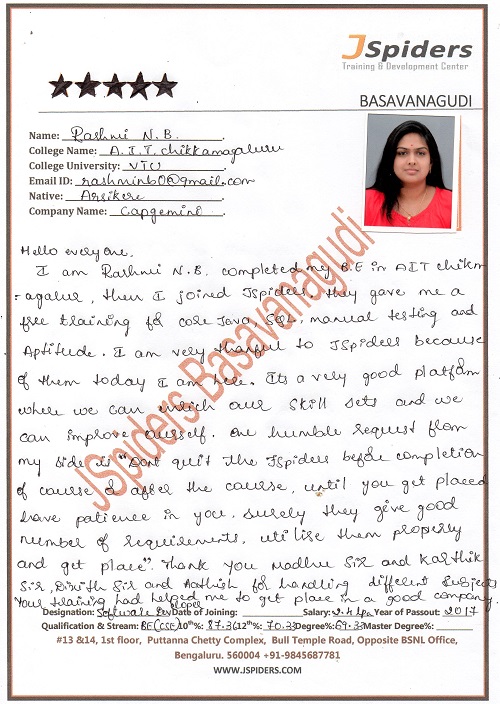 JSpiders
Training & Development Center
BASAVANAGUDI
Name: Rashmi N.B.
College Name: A.I.T. chikkamagaluru
College University: VTU
Email ID: rashminb0@gmail.com
Native: Arsikere
Company Name: Capgemini
Hello everyone,
I am Rashmi N.B. completed my B.E in AIT chikm
-agalur, then I joined JSpiders. they gave me a
free training for core Java, SQL, manual testing and
Aptitude. I am very thankful to JSpiders because
of them today I am here. Its a very good platform
where we can enrich our skill sets and we
can improve ourself. one humble request from
my side is "Dont quit the JSpiders before completion
of course & after the course, until you get placed
have patience in you. surely they give good
number of requirements, utilise them properly
and get place". Thank you Madhu Sir and Karthik
Sir, Sir and for handling different subjects
Your training had helped me to get place in a good company.
Designation: Software Developer Date of Joining: Salary: Year of Passout: 2017
Qualification & Stream: BE(CSE) 10th%: 87.36 12th%: 70.33 Degree%: 69.33 Master Degree%:
#13 &14, 1st floor, Puttanna Chetty Complex, Bull Temple Road, Opposite BSNL Office,
Bengaluru. 560004 +91-9845687781
WWW.JSPIDERS.COM
JSpiders Basavanagudi